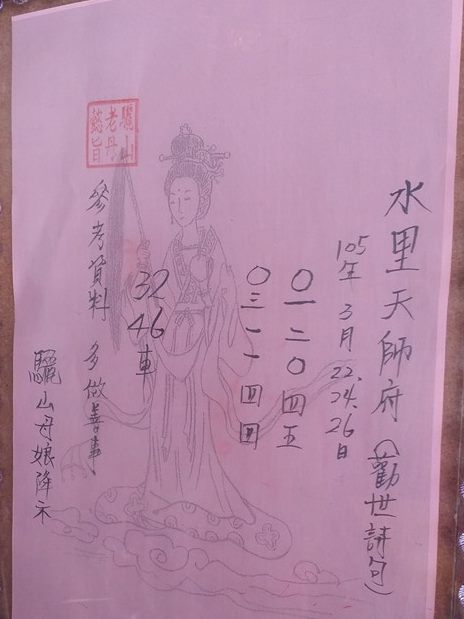 水里天師府(勸世詩句)
105年3月22.24.26日
〇一二〇四五
〇三一一四四
32 46車
參考資料 多做善事
驪山母娘降示
驪山
老母
懿旨